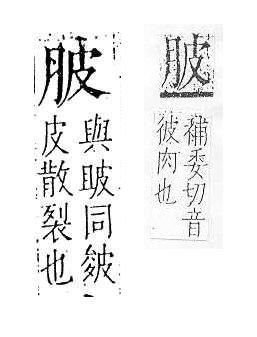 䏢
與同皴
皮散裂也
䏢
補委切音
彼肉也